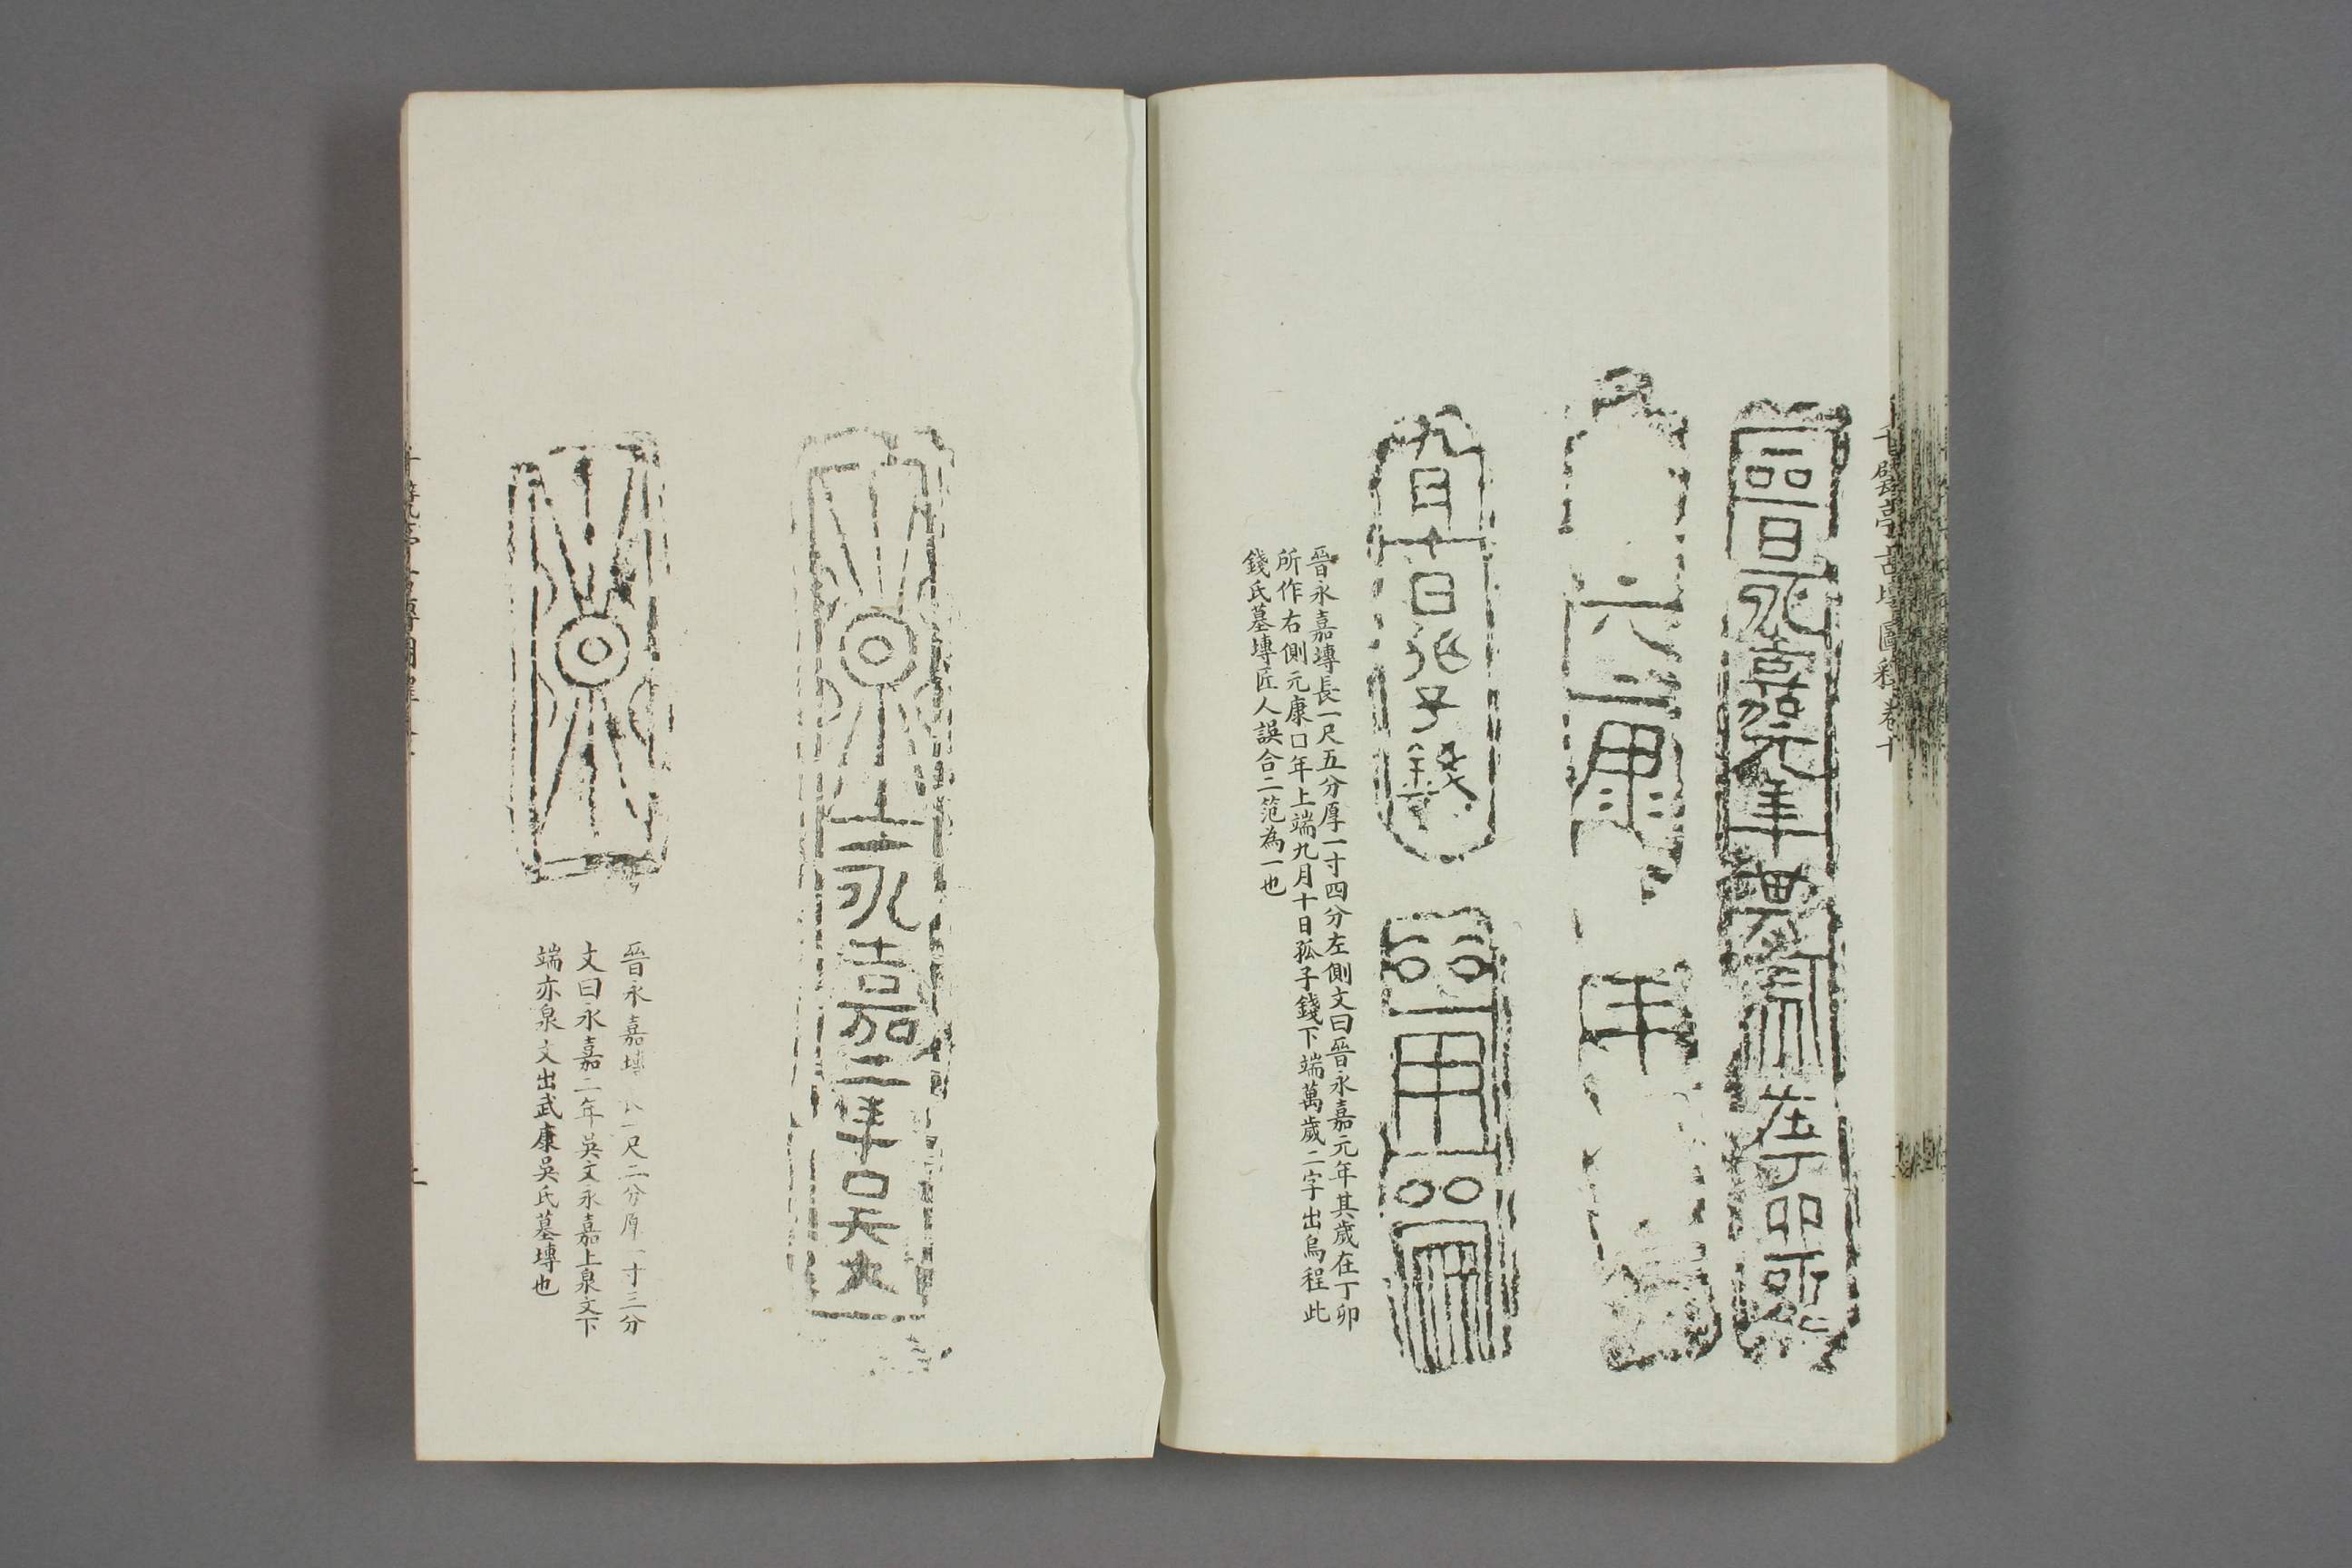 千甓亭古塼圖釋卷十
晉永嘉元年其歲在丁卯所
元康
年
九月十日孤子錢
萬歲
晉永嘉塼長一尺五分厚一寸四分左側文曰晉永嘉元年其歲在丁卯
所作右側元康口年上端九月十日孤子錢下端萬歲二字出烏程此
錢氏墓塼匠人誤合二笵為一也
永嘉二年吳
晉永嘉塼長一尺二分厚一寸三分
文曰永嘉二年吳文永嘉上泉文下
端亦泉文出武康吳氏墓塼也